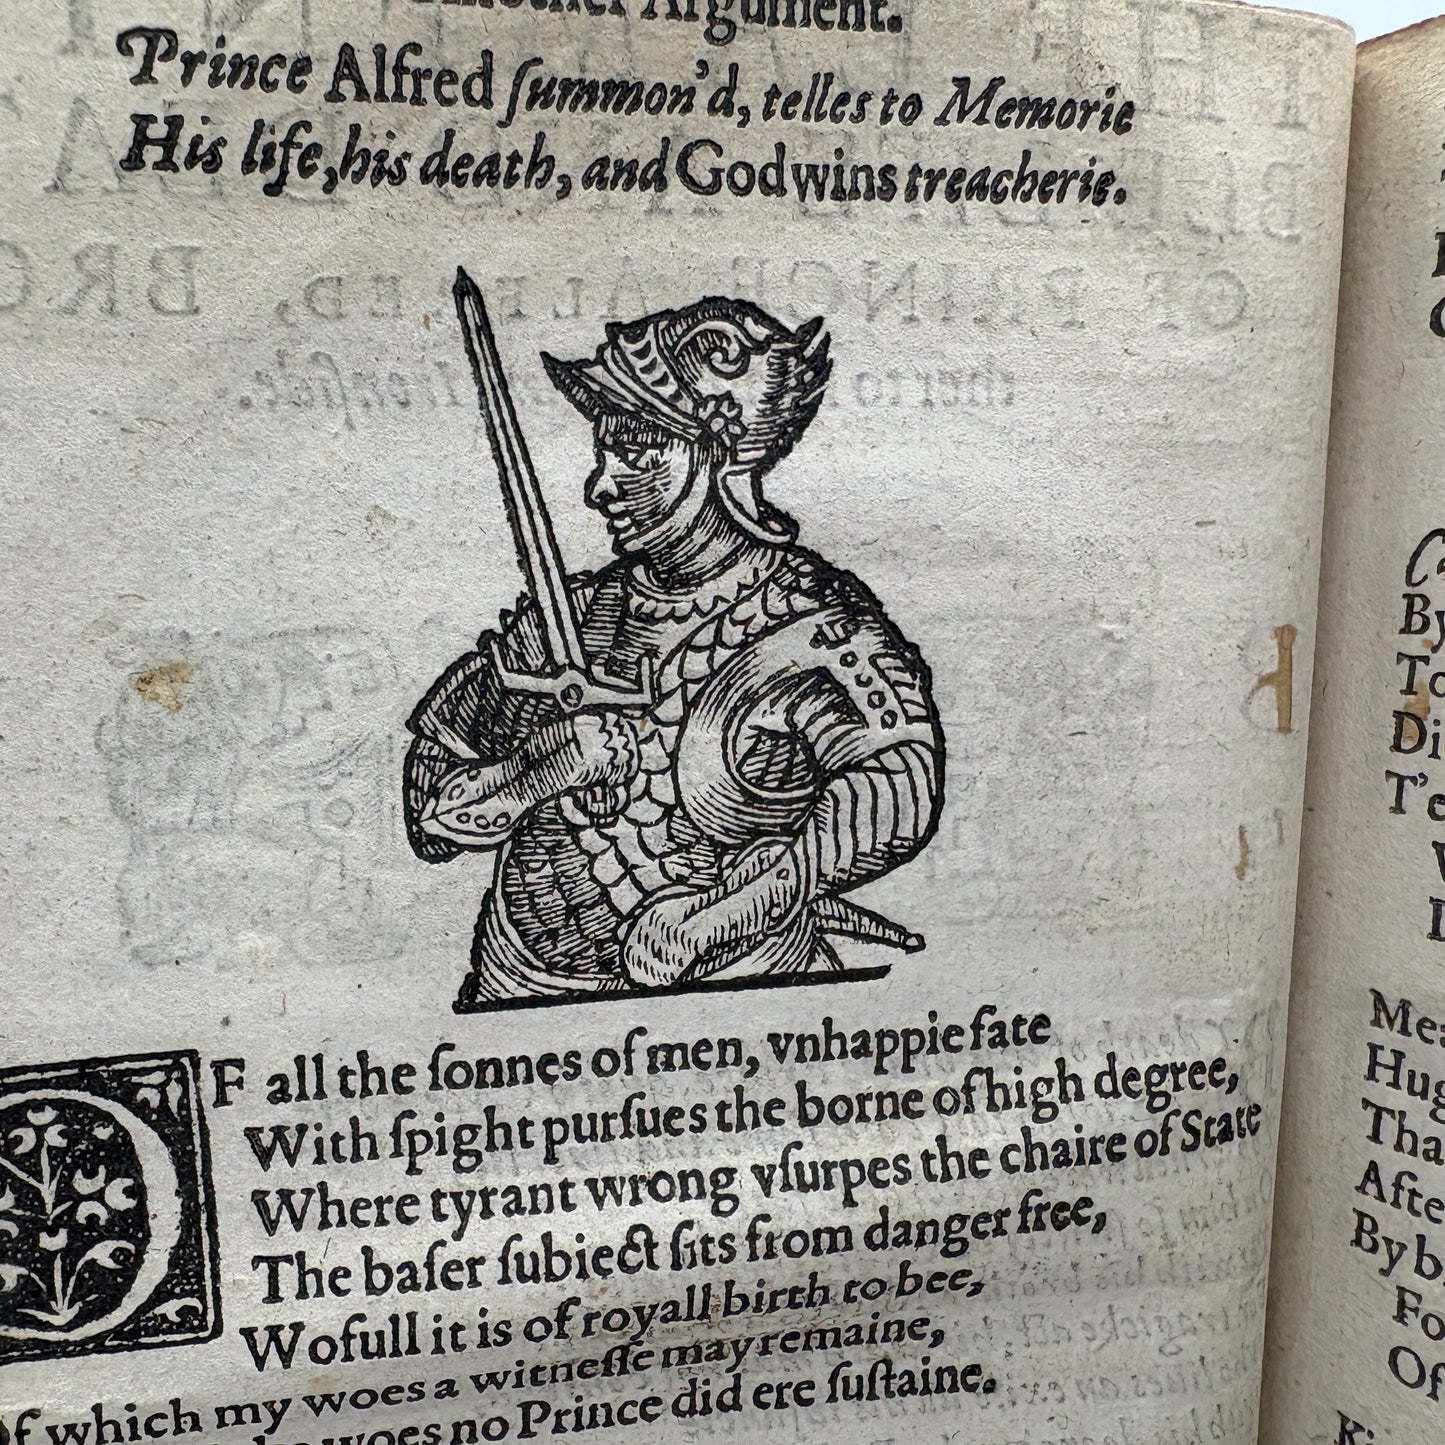 Another Argument.
Prince Alfred ſummon'd, telles to Memorie
His life, his death, and Godwins treacherie.
OF all the ſonnes of men, vnhappie fate
With ſpight purſues the borne of high degree,
Where tyrant wrong vſurpes the chaire of State
The baſer ſubiect ſits from danger free,
Wofull it is of royall birth to bee,
Of which my woes a witneſſe may remaine,
woes no Prince did ere ſuſtaine.
By
To
Di
T'e
Mes
Hug
Tha
Afte
By b
Fo
Of
Ki